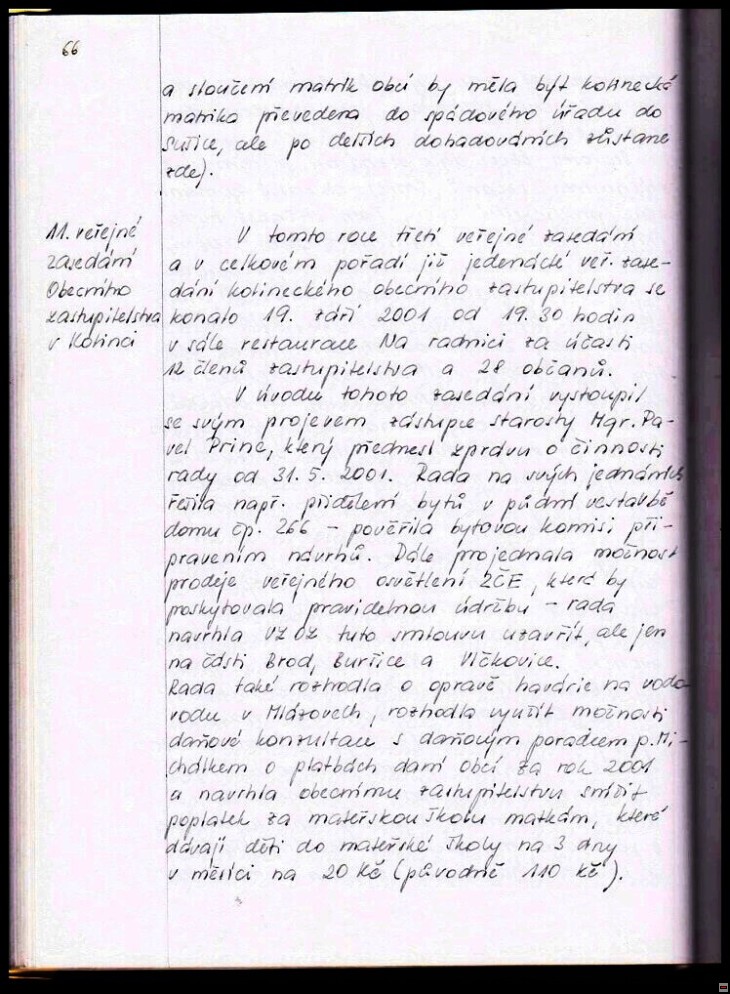 66
a sloučení matrik obcí by měla být kolinecká
matrika převedena do spádového úřadu do
Sušice, ale po delších dohadováních zůstane
zde).
11. veřejné
zasedání
Obecního
zastupitelstva
v Kolinci
V tomto roce třetí veřejné zasedání
a v celkovém pořadí již jedenácté veř. zase-
dání kolineckého obecního zastupitelstva se
konalo 19. září 2001 od 19.30 hodin
v sále restaurace Na radnici za účasti
12 členů zastupitelstva a 28 občanů.
V úvodu tohoto zasedání vystoupil
se svým projevem zástupce starosty Mgr. Pa-
vel Princ, který přednesl zprávu o činnosti
rady od 31. 5. 2001. Rada na svých jednáních
řešila např. přidělení bytů v půdní vestavbě
domu čp. 266 – pověřila bytovou komisi při-
pravením návrhů. Dále projednala možnost
prodeje veřejného osvětlení ZČE, která by
poskytovala pravidelnou údržbu – rada
navrhla VZ OZ tuto smlouvu uzavřít, ale jen
na části Brod, Buršice a Vlčkovice.
Rada také rozhodla o opravě havárie na vodo-
vodu v Mlázovech, rozhodla využít možnosti
daňové konzultace s daňovým poradcem p. Mi-
chálkem o platbách daní obcí za rok 2001
a navrhla obecnímu zastupitelstvu snížit
poplatek za mateřskou školu matkám, které
dávají děti do mateřské školy na 3 dny
v měsíci na 20 Kč (původně 110 Kč).